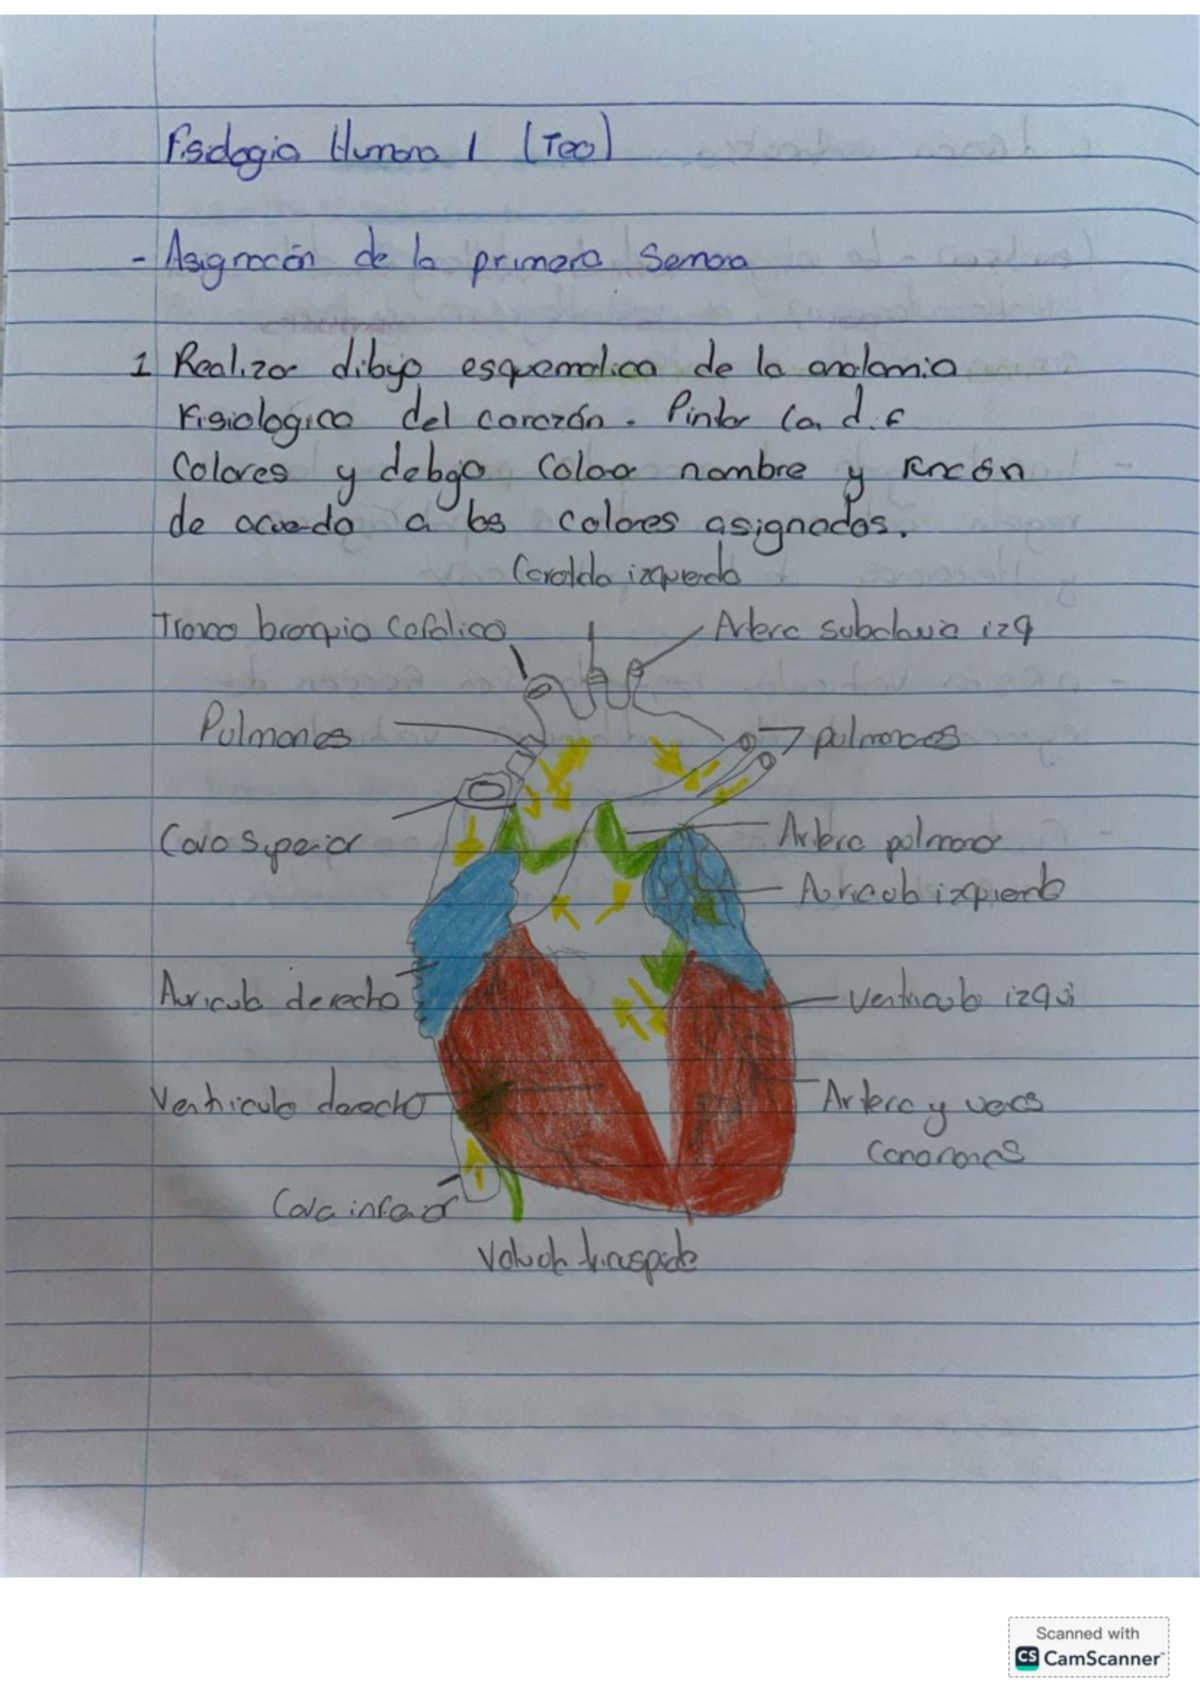 Fisiologia Humana 1 (Teo)
- Asignación de la primera Semana
1 Realizar dibujo esquematica de la anatomia
Fisiologica del corazón. Pintar Con dif
Colores y debajo Coloca nombre y Función
de acuerdo a los colores asignados.
Carotida izquierda
Tronco branquio Cefalico
Arteria subclavia izq
Pulmones
pulmones
Cava Superior
Arteria pulmonar
Auricula izquierda
Auricula derecho
Ventriculo izqui
Ventriculo derecho
Arteria y venas
Coronarias
Cava inferior
Valvula tricuspide
Scanned with
CS CamScanner